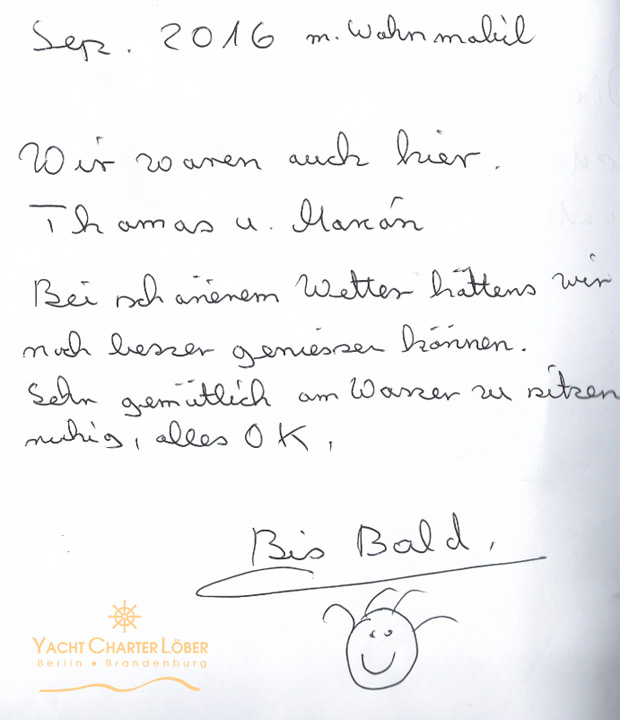 Sep. 2016 m. Wohnmobil
Wir waren auch hier.
Thomas u. Marián
Bei schönenem Wetter hättens wir
noch besser geniessen können.
Sehr gemütlich am Wasser zu sitzen
ruhig, alles OK,
Bis Bald.
YACHT CHARTER LÖBER
Berlin • Brandenburg